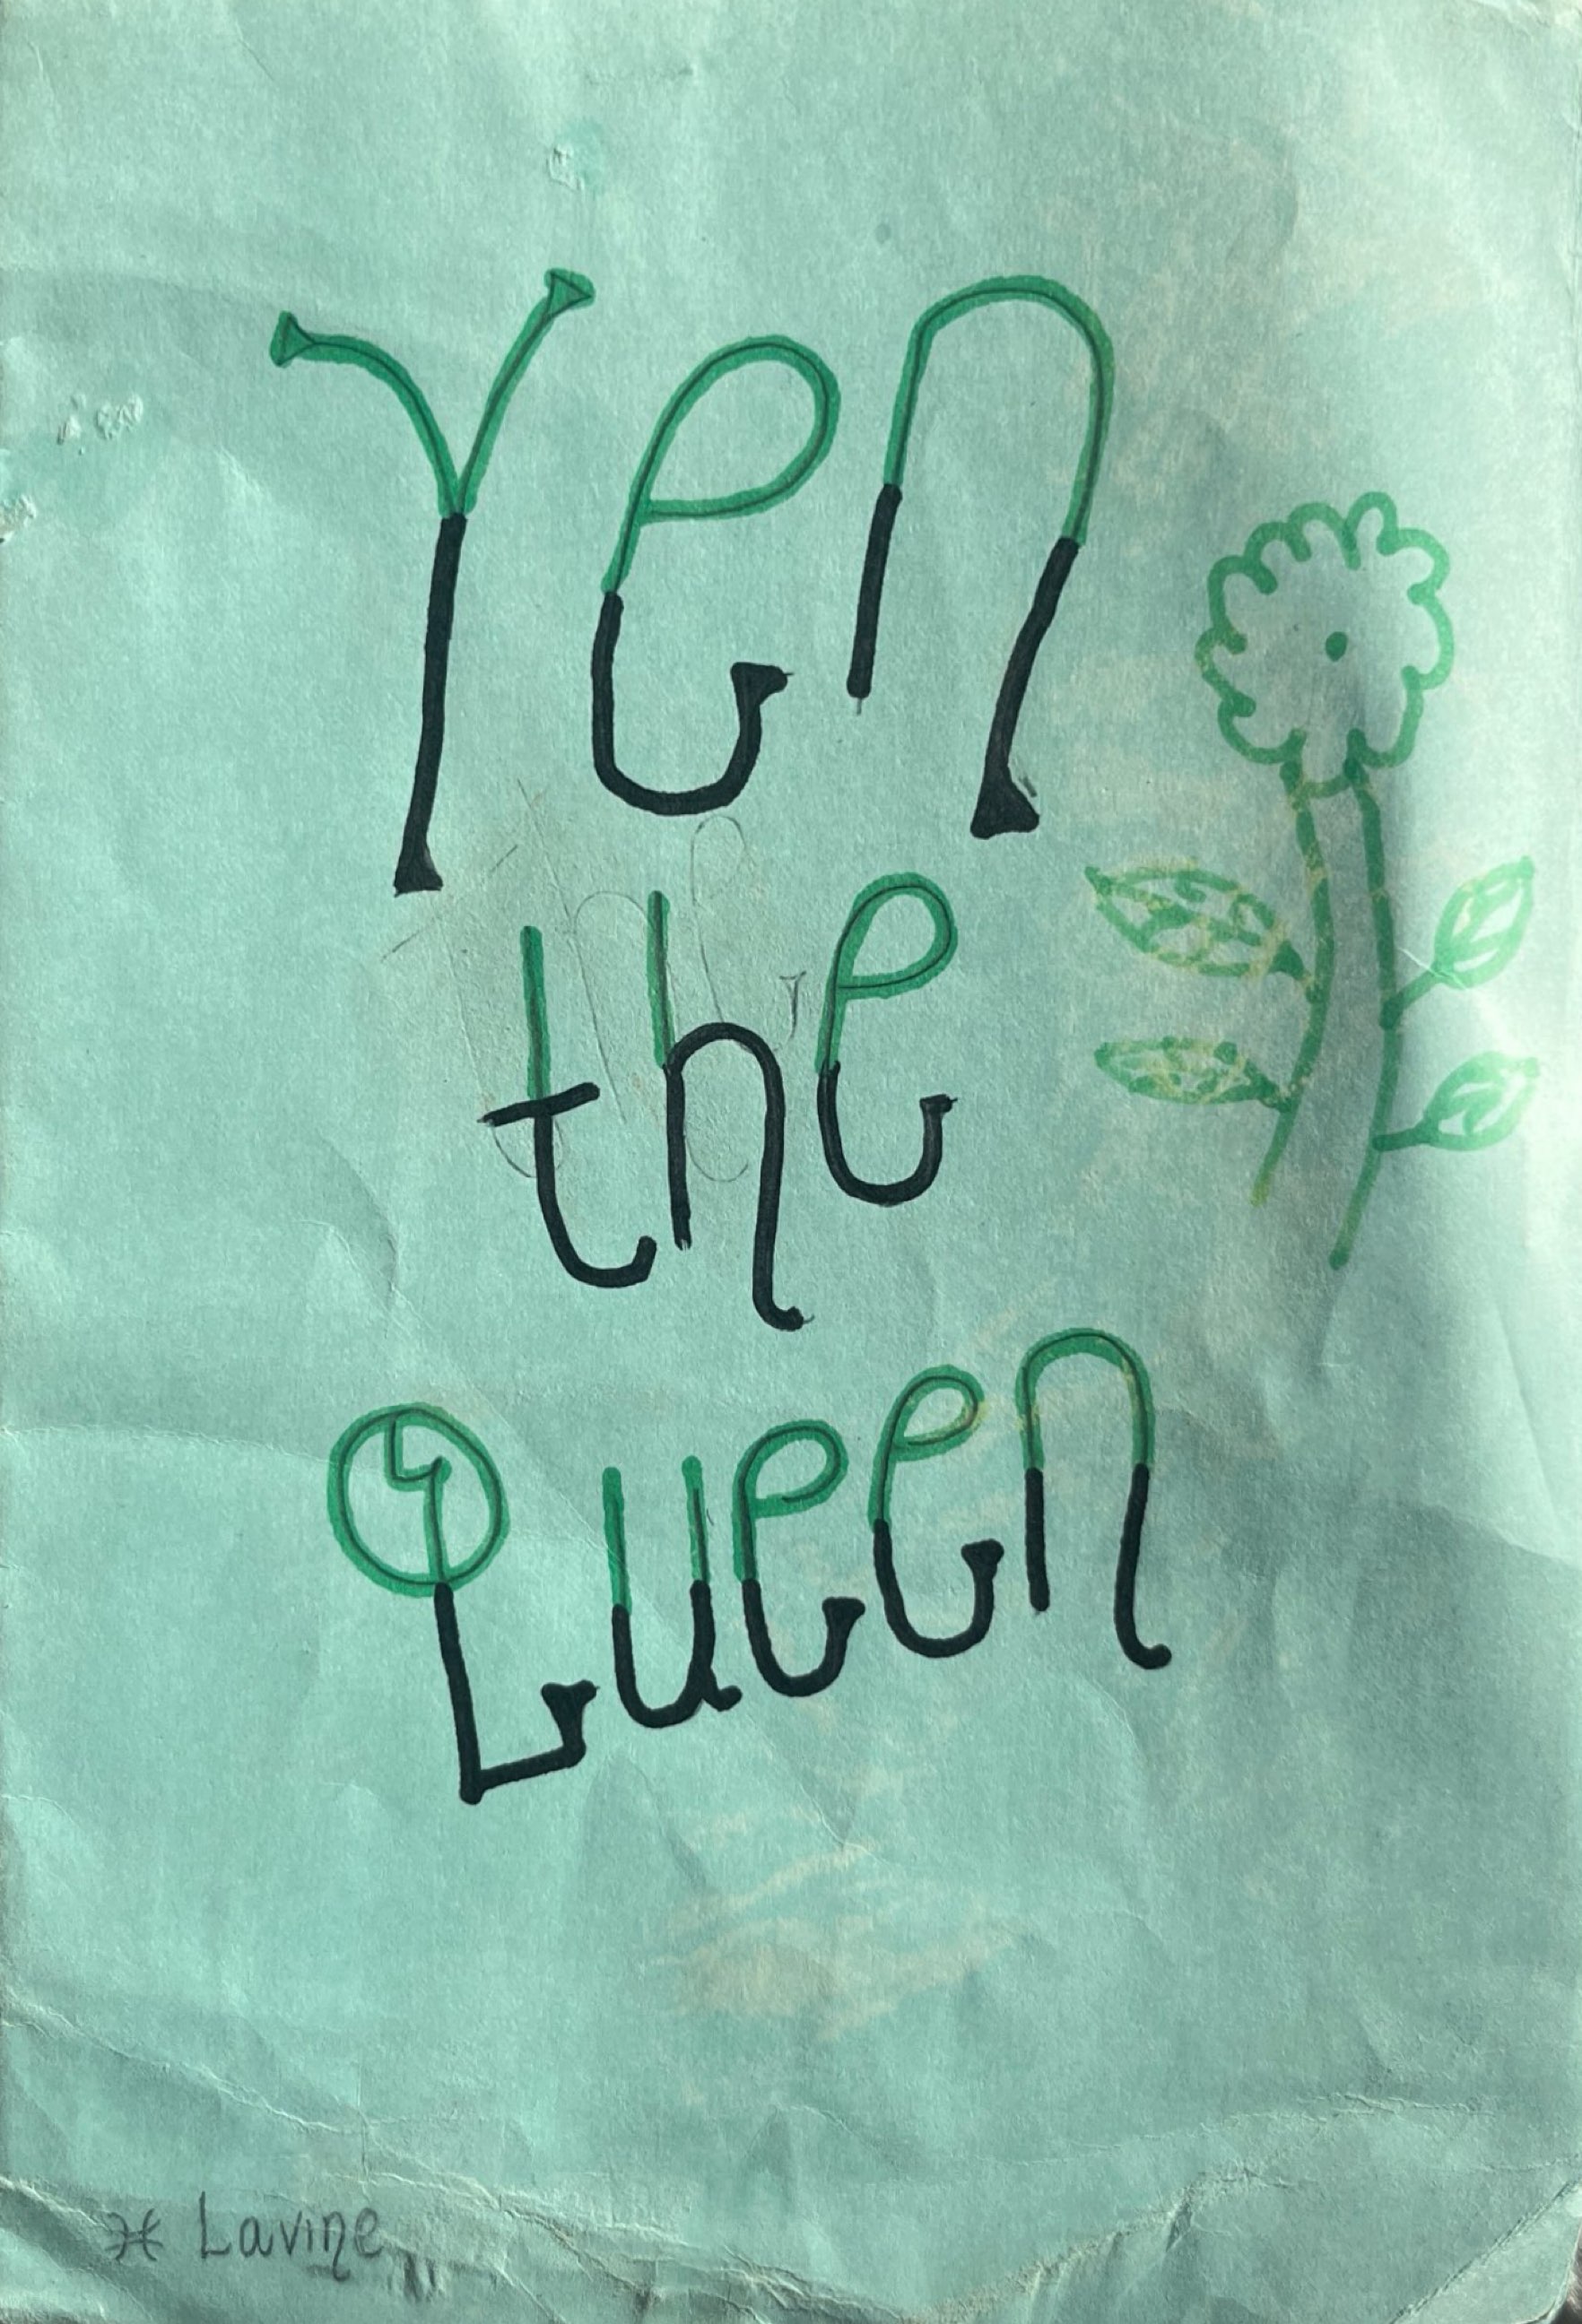 Yen
the
Queen
Lavine